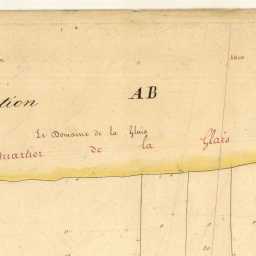 AB
tion
Le Domaine de la Glaïs
Quartier de la Glaës